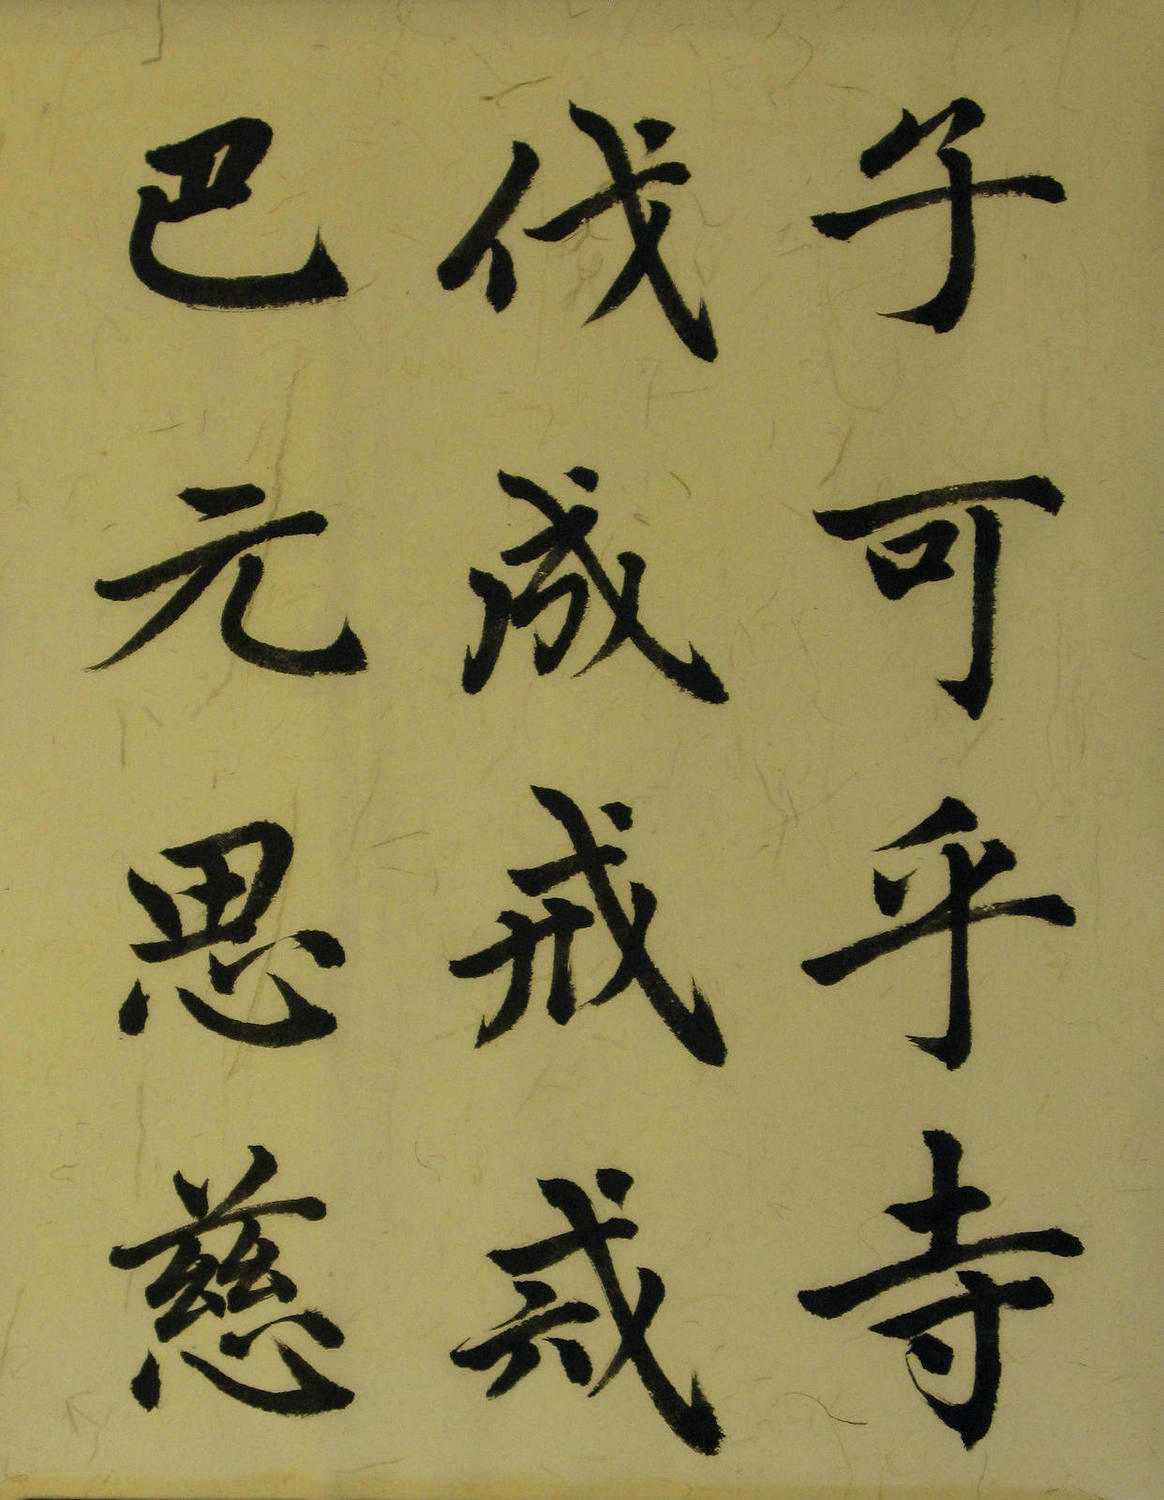 子可乎寺
伐成戒戒
巴元思慈